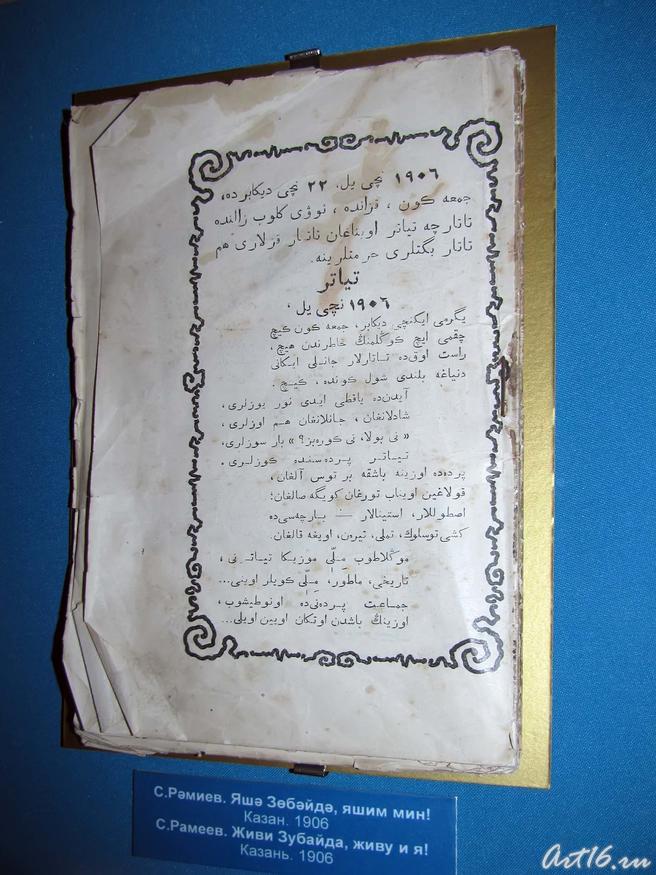 ١٩٠٦ نچی یل، ٢٢ نچی دیکابرده،
جمعه کون، قزانده، نووی کلوب زالنده
تاتارچه تیاتر اویناغان تاتار قزلاری هم
تاتار بگتلری حرمتلرینه.
تیاتر
١٩٠٦ نچی یل،
یگرمی ایکنچی دیکابر، جمعه کون کیچ
چقمی ایچ کوکلمنڭ خاطرندن هیچ،
راست اوق‌ده تاتارلار جانلی ایکانی
دنیاغه بلندی شول کونده، کیچ.
آیدن‌ده یاقطی ایدی نور یوزلری،
شادلانغان، جانلانغان هم اوزلری،
« نی بولا، نی کوره‌بز؟ » بار سوزلری،
تیاتر پرده‌سنده کوزلری.
پرده‌ده اوزینه باشقه بر توس آلغان،
قولاغین اویناب تورغان کویگه صالغان؛
اصطوللار، استینالار — بارچه‌سی‌ده
کشی توسلوک، تملی، تیره‌ن، اویغه قالغان.
موڭلاطوب ملّی موزیکا تیاترنی،
تاریخی، ماطور، ملّی کویلر اوینی...
جماعت پرده‌نی‌ده اونوطیشوب،
اوزینڭ باشدن اوتکان اویین اویلی...
С.Рәмиев. Яшә Зөбәйдә, яшим мин!
Казан. 1906
С.Рамеев. Живи Зубайда, живу и я!
Казань. 1906
Art16.ru